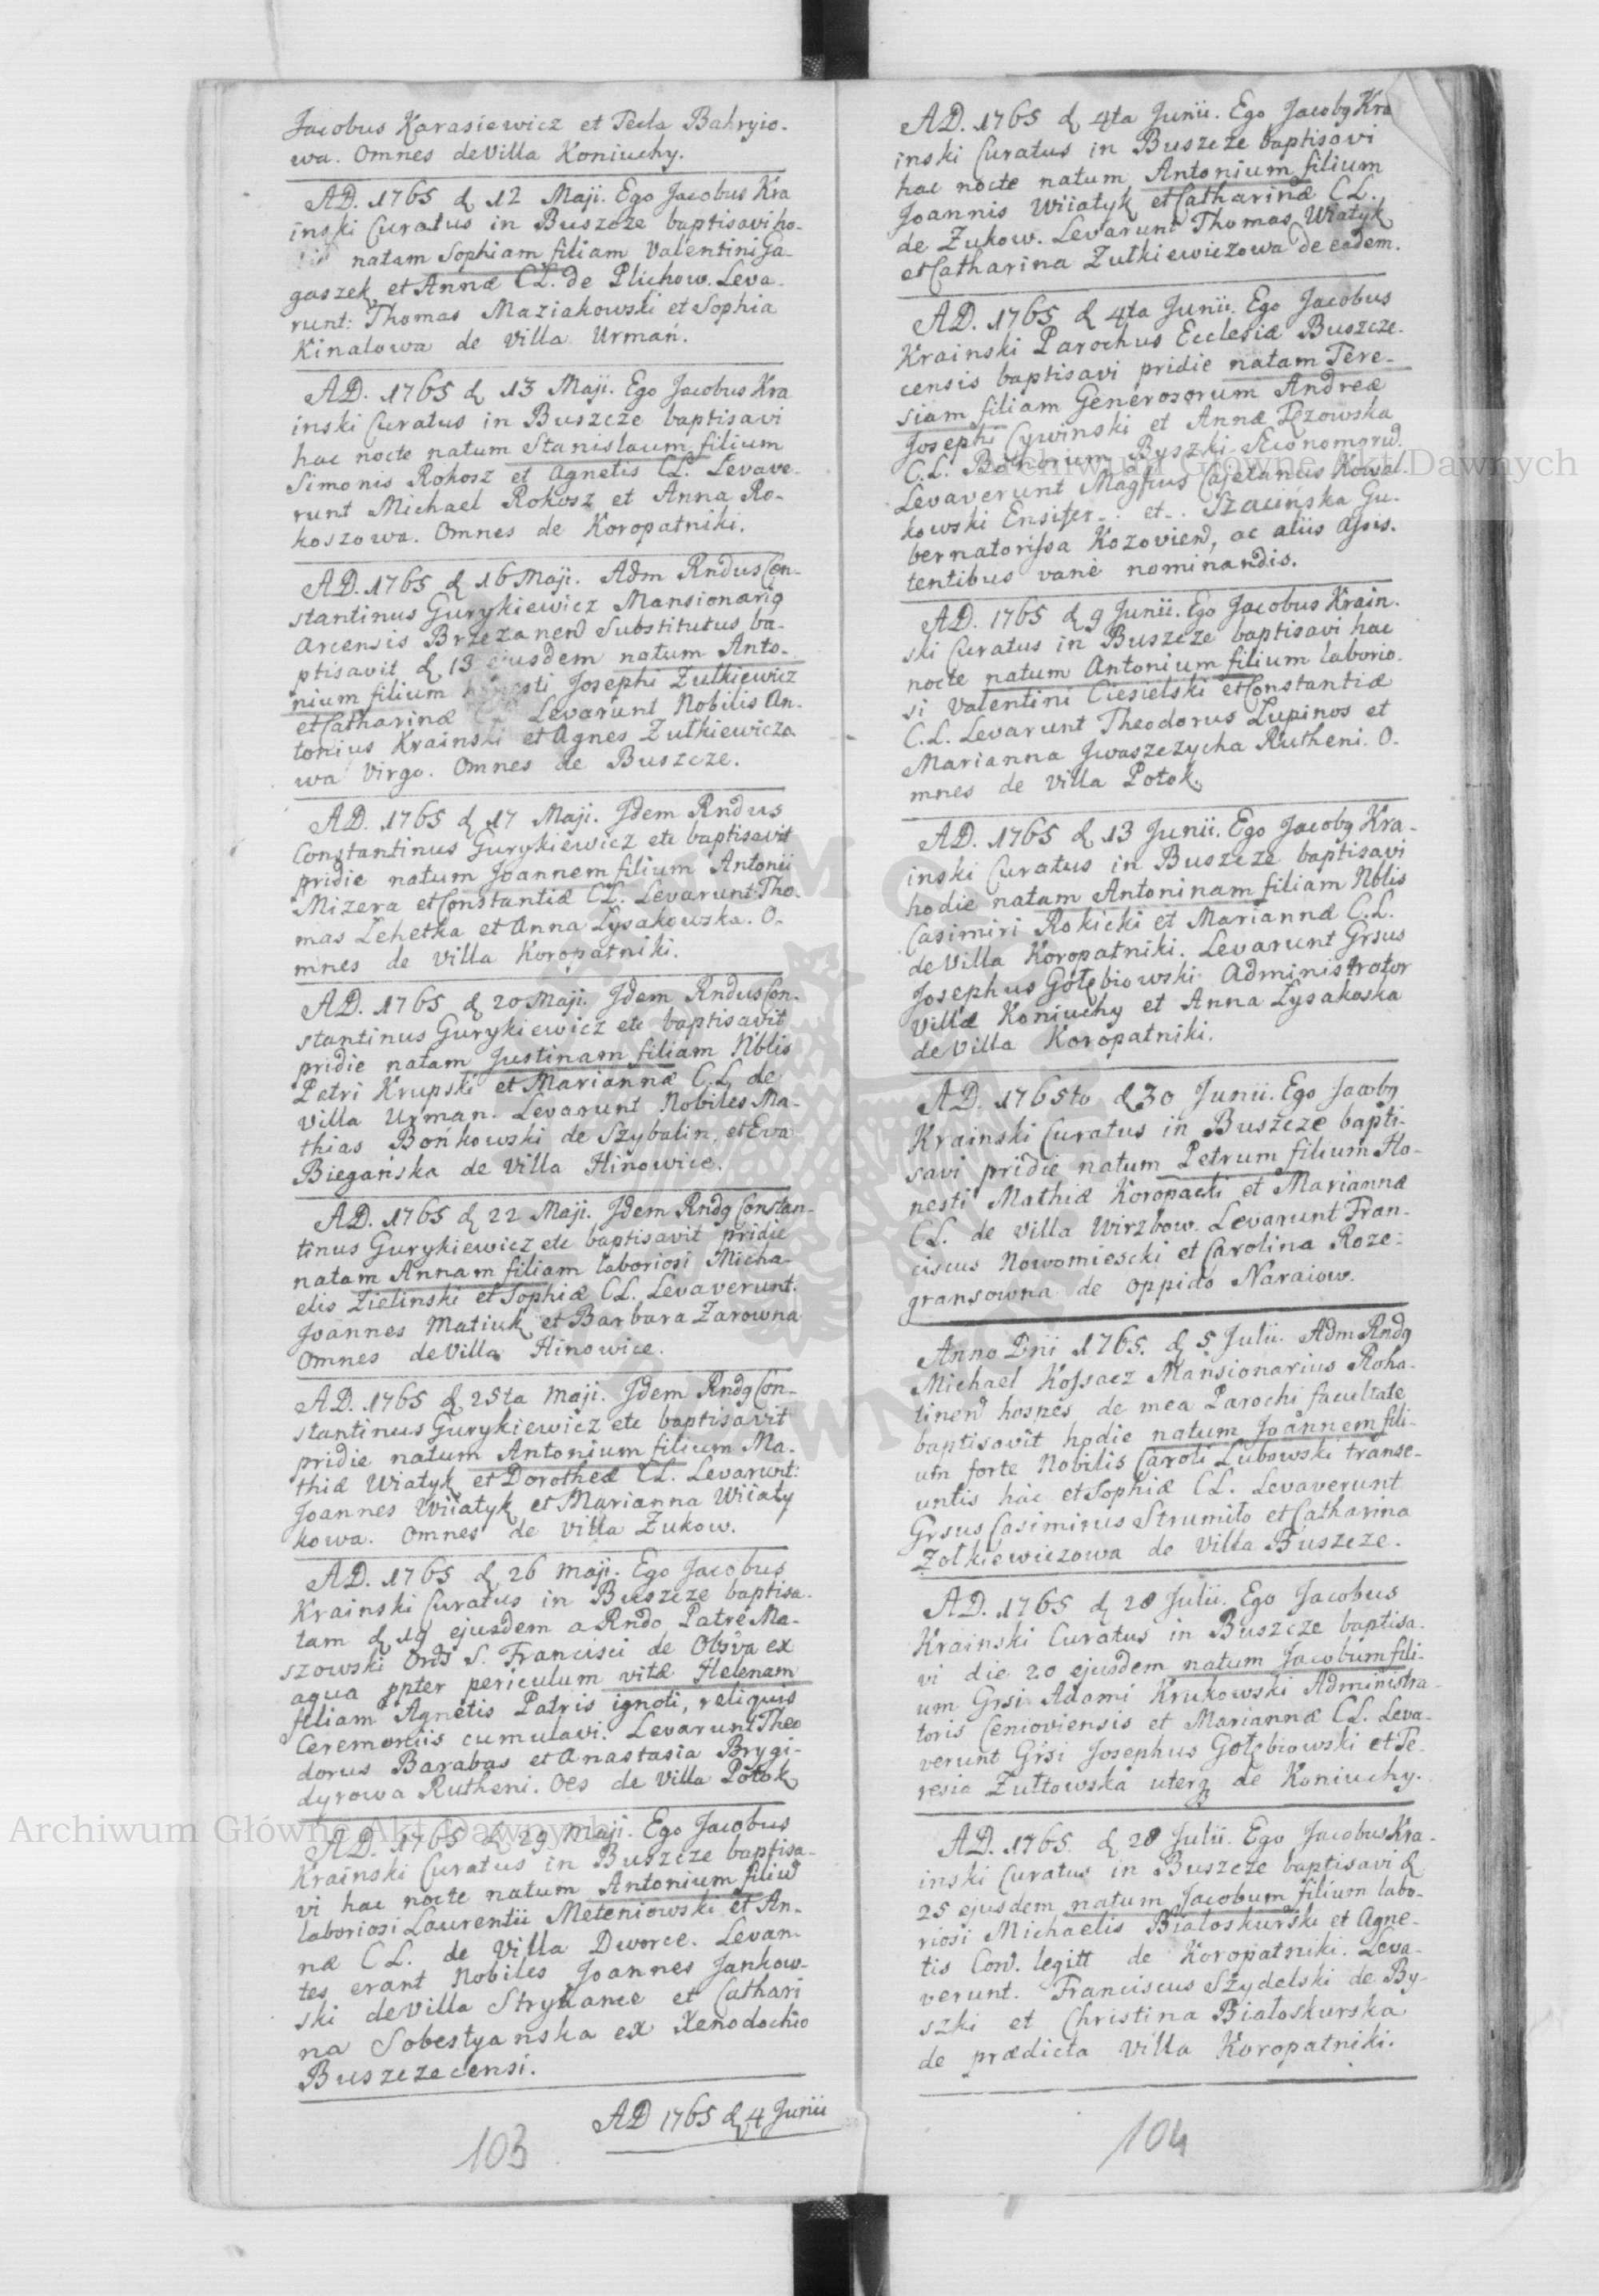 Jacobus Karasiewicz et Tecla Bahryio-
wa. Omnes de Villa Koniuchy.
AD. 1765 d 12 Maji. Ego Jacobus Kra
inski Curatus in Buszcze baptisavi ho-
natam Sophiam filiam Valentini Ga-
gaszek et Annæ CL. de Plichow. Leva-
runt: Thomas Maziakowski et Sophia
Kinalowa de Villa Urmań.
AD. 1765 d 13 Maji. Ego Jacobus Kra
inski Curatus in Buszcze baptisavi
hac nocte natum Stanislaum filium
Simonis Rokosz et Agnetis CL. Levave-
runt Michael Rokosz et Anna Ro-
koszowa. Omnes de Koropatniki.
AD. 1765 d 16 Maji. Adm Rndus Con-
stantinus Gurykiewicz Mansionariq
Arcensis Brzezanen Substitutus ba-
ptisavit d 13 ejusdem natum Anto-
nium filium Josephi Zulkiewicz
et Catharinæ Levarunt Nobilis An-
tonius Krainski et Agnes Zulkiewiczo
wa Virgo. Omnes de Buszcze.
AD. 1765 d 17 Maji. Jdem Rndus
Constantinus Gurykiewicz etc baptisavit
pridie natum Joannem filium Antonii
Mizera et Constantiæ CL. Levarunt Tho-
mas Lehetka et Anna Lysakowska. O-
mnes de Villa Koropatniki.
AD. 1765 d 20 Maji. Jdem Rndus Con-
stantinus Gurykiewicz etc baptisavit
pridie natam Justinam filiam Nblis
Petri Krupski et Mariannæ C.L. de
Villa Urman. Levarunt Nobiles Ma-
thias Bońkowski de Szybalin, et Eva
Biegańska de Villa Hinowice.
AD. 1765 d 22 Maji. Jdem Rndq Constan-
tinus Gurykiewicz etc baptisavit pridie
natam Annam filiam laboriosi Micha-
elis Zielinski et Sophiæ CL. Levaverunt:
Joannes Matiuk et Barbara Zarowna
Omnes de Villa Hinowice.
AD. 1765 d 25ta Maji. Jdem Rndq Con-
stantinus Gurykiewicz etc baptisavit
pridie natum Antonium filium Ma-
thiæ Wiatyk et Dorotheæ CL. Levarunt:
Joannes Wiiatyk et Marianna Wiiaty
kowa. Omnes de Villa Zukow.
AD. 1765 d 26 Maji. Ego Jacobus
Krainski Curatus in Buszcze baptisa-
tam d 19 ejusdem a Rndo Patre Ma-
szowski Ordis S. Francisci de Obsva ex
aqua ppter periculum vitæ Helenam
filiam Agnetis Patris ignoti, reliquis
Ceremoniis cumulavi. Levarunt Theo
dorus Barabas et Anastasia Brygi-
dyrowa Rutheni. Oes de Villa Potok
AD. 1765 d 29 Maji. Ego Jacobus
Krainski Curatus in Buszcze baptisa-
vi hac nocte natum Antonium filiu
laboriosi Laurentii Meteniowski et An-
næ CL. de Villa Dworce. Levan-
tes erant Nobiles Joannes Jankow-
ski de Villa Stryhance et Cathari
na Sobestyanska ex Xenodochio
Buszczecensi.
AD 1765 d 4 Junii
103
AD. 1765 d 4ta Junii. Ego Jacobq Kra
inski Curatus in Buszcze baptisavi
hac nocte natum Antonium filium
Joannis Wiiatyk et Catharinæ CL.
de Zukow. Levarunt Thomas Wiatyk
et Catharina Zulkiewiczowa de eadem.
AD. 1765 d 4ta Junii. Ego Jacobus
Krainski Parochus Ecclesiæ Buszcze-
censis baptisavi pridie natam Tere-
siam filiam Generosorum Andreæ
Josephi Cywinski et Annæ Tęzowska
C.L. Bonorum Byszki
Levaverunt Magfcus Cajetanus Kowal
kowski Ensifer.. et.. Szacinska Gu-
bernatorissa Kozovien, ac aliis Assis-
tentibus vanè nominandis.
AD. 1765 d 9 Junii. Ego Jacobus Krain-
ski Curatus in Buszcze baptisavi hac
nocte natum Antonium filium laborio-
si Valentini Ciesielski et Constantiæ
C.L. Levarunt Theodorus Lupinos et
Marianna Jwaszczycha Rutheni. O-
mnes de Villa Potok.
AD. 1765 d 13 Junii. Ego Jacobq Kra-
inski Curatus in Buszcze baptisavi
hodie natam Antoninam filiam Nblis
Casimiri Rokicki et Mariannæ C.L.
de Villa Koropatniki. Levarunt Grsus
Josephus Gołębiowski Administrator
Villæ Koniuchy et Anna Lysakoska
de Villa Koropatniki.
AD. 1765to d 30 Junii. Ego Jacobq
Krainski Curatus in Buszcze bapti-
savi pridie natum Petrum filium Ho-
nesti Mathiæ Koropacki et Mariannæ
CL. de Villa Wirzbow. Levarunt Fran-
ciscus Nowomiescki et Carolina Roze-
gransowna de oppido Naraiow.
Anno Dni 1765. d 5 Julii. Adm Rndq
Michael Kossacz Mansionarius Roha-
tinen hospes de mea Parochi facultate
baptisavit hodie natum Joannem fili-
um forte Nobilis Caroli Lubowski transe-
untis hac et Sophiæ CL. Levaverunt
Grsus Casimirus Strumiło et Catharina
Zołkiewiczowa de Villa Buszcze.
AD. 1765 d 28 Julii. Ego Jacobus
Krainski Curatus in Buszcze baptisa-
vi die 20 ejusdem natum Jacobum fili-
um Grsi Adami Krukowski Administra-
toris Cenioviensis et Mariannæ CL. Leva-
verunt Grsi Josephus Gołębiowski et Te-
resia Zułtowska uterq de Koniuchy.
AD. 1765. d 28 Julii. Ego Jacobus Kra-
inski Curatus in Buszcze baptisavi d
25 ejusdem natum Jacobum filium labo-
riosi Michaelis Białoskurski et Agne-
tis Con. legitt de Koropatniki. Leva-
verunt. Franciscus Szydelski de By-
szki et Christina Białoskurska
de prædicta Villa Koropatniki.
104
Archiwum Główne Akt Dawnych
Archiwum Główne Akt Dawnych